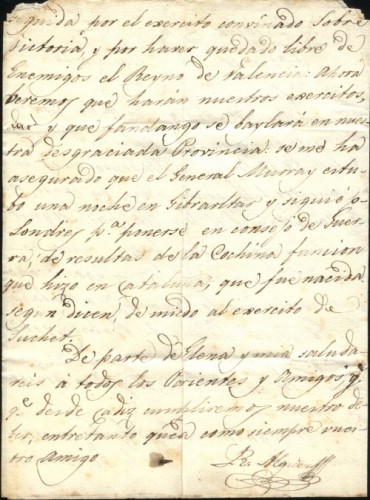 seguida por el exercito convinado sobre
Victoria, y por haver quedado libre de
Enemigos el Reyno de Valencia: Ahora
veremos que harán nuestros exercitos,
y que fandango se baylará en nues
tra desgraciada Provincia: se me ha
asegurado que el General Murray estu-
bo una noche en Gibraltar y siguió p.ª
Londres p.ª ponerse en consejo de Guer
ra, de resultas de la Cochina funcion
que hizo en Cataluña, que fue nacida
segun dicen, de miedo al exercito de
Suchet.
De parte de Elena y mia saluda
reis a todos los Parientes y Amigos, y
q.e desde Cadiz cumpliremos nuestro de
ber, entretanto queda como siempre vues
tro Amigo